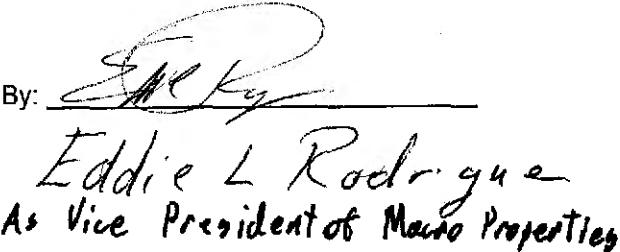 By:
Eddie L Rodrigue
As Vice President of Macro Properties